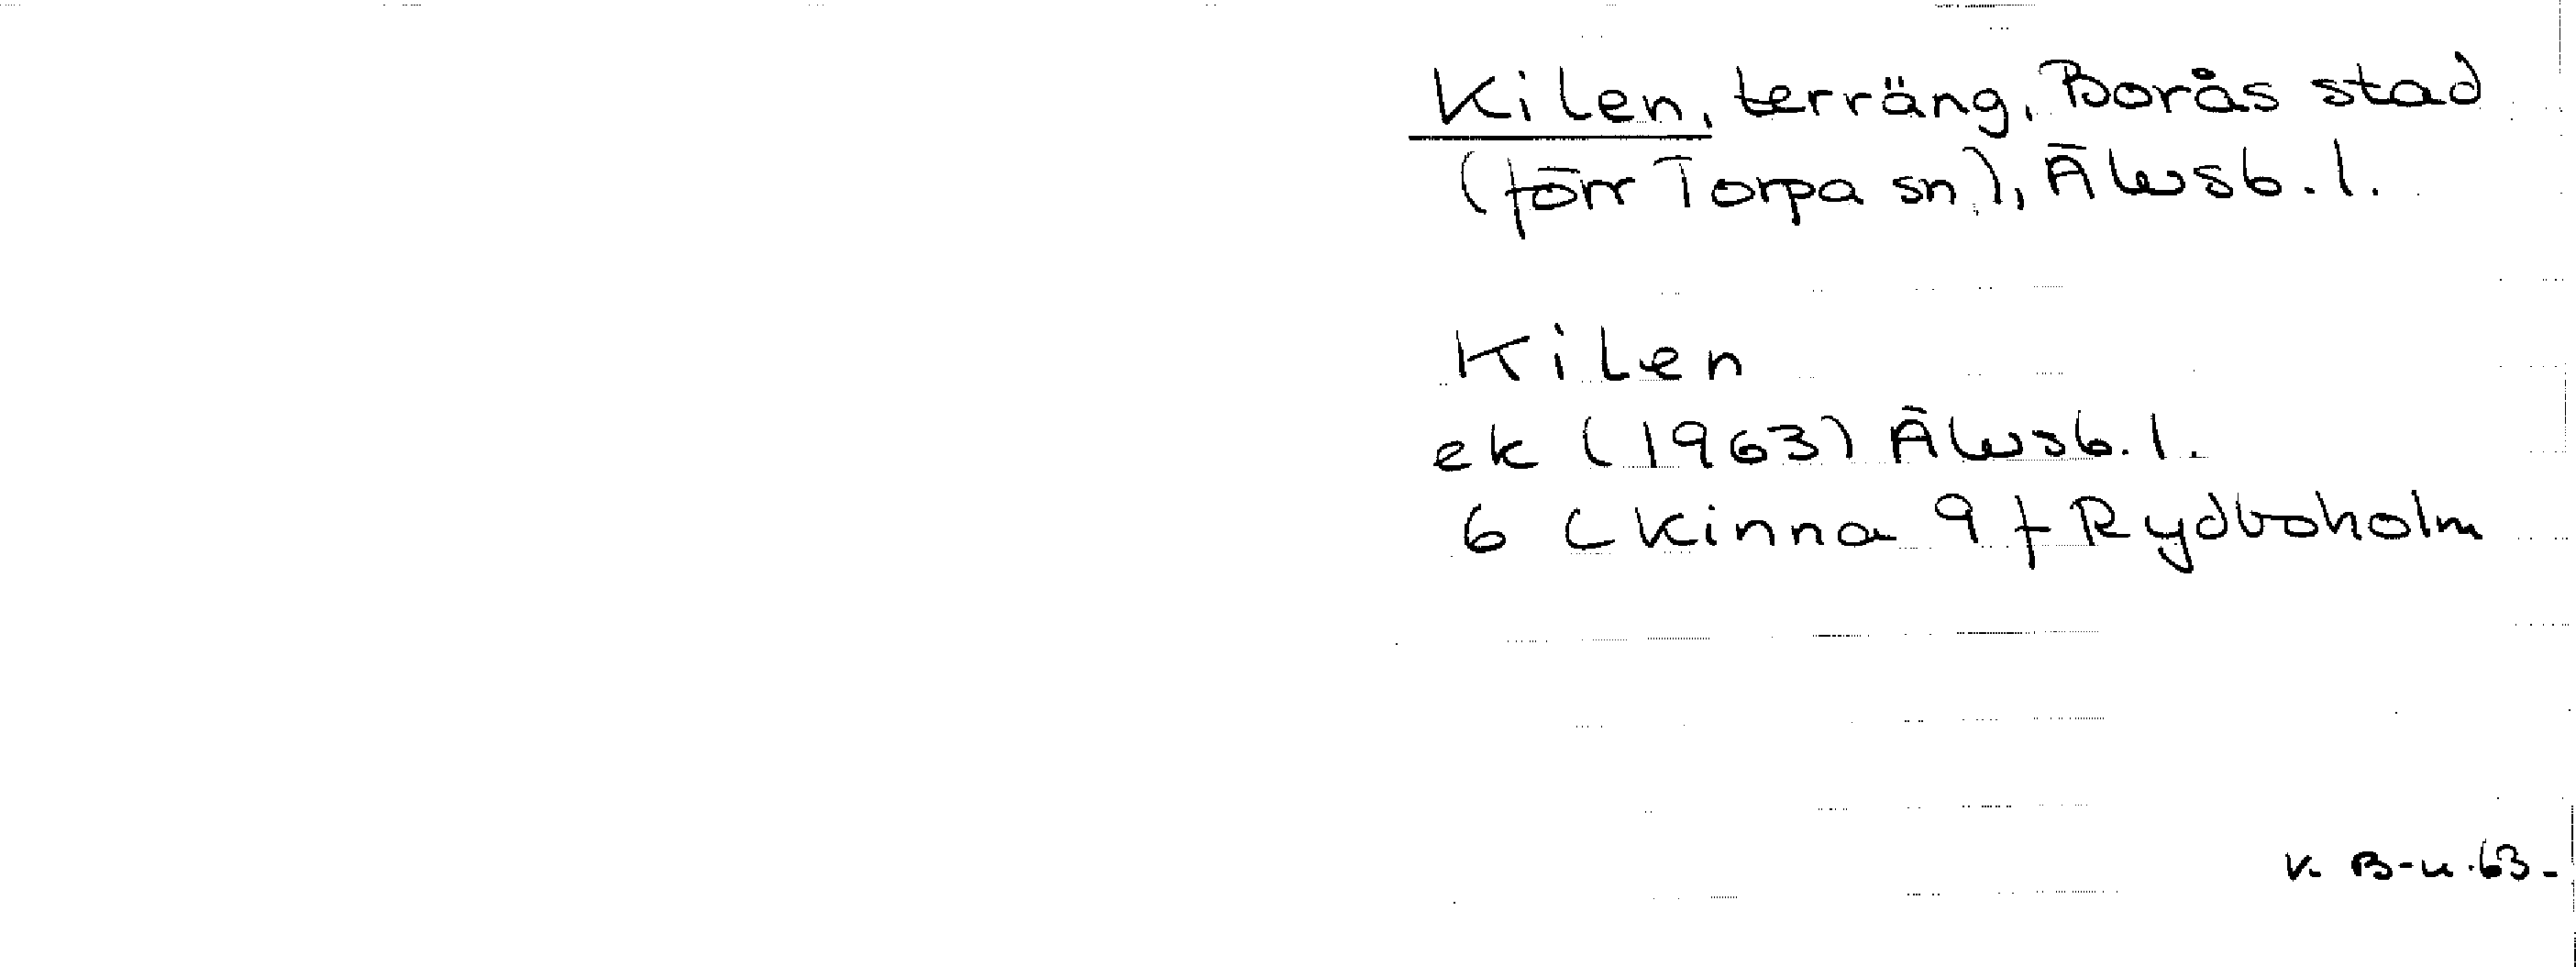 Kilen, terräng, Borås stad
(förr Torpa sn), Älvsb. l.
Kilen
ek (1963) Älvsb. l.
6 C Kinna 9 f Rydboholm
K. B-n. 63.